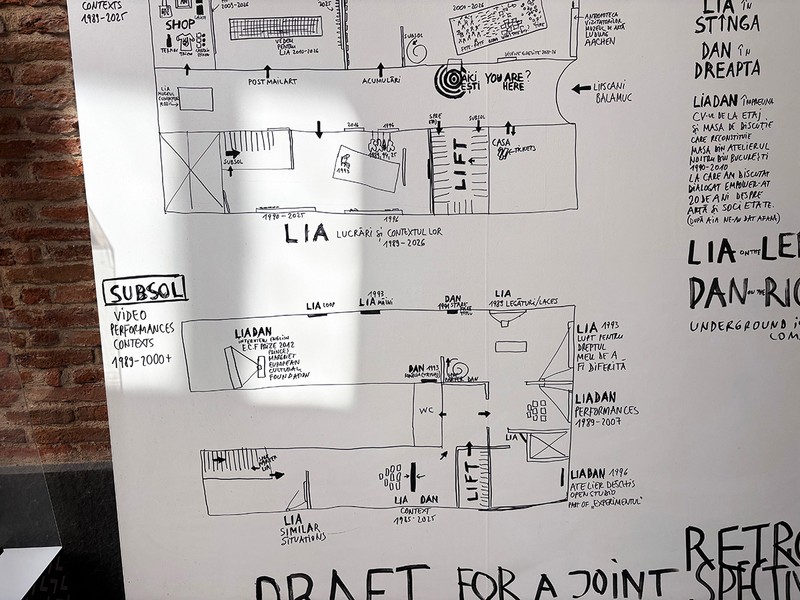 CONTEXTS
1989-2025
SHOP
2009-2026
2025
VIDEO
PENTRU
LIA 2010-2026
SUBSOL
2009-2026
LUDWIG
AACHEN
LIA
POSTMAILART
ACUMULĂRI
AICI
EȘTI
YOU ARE?
HERE
LIPSCANI
BĂLAMUC
2016
1996
SUBSOL
SUBSOL
1993
LIFT
CASA
TICKETS
1990-2025
1996
LIA LUCRĂRI și CONTEXTUL LOR
1989-2026
LIA ÎN
STÎNGA
DAN ÎN
DREAPTA
LIADAN ÎMPREUNĂ
CV-UL DE LA ETAJ
și MASA DE DISCUȚIE
CARE RECONSTITUIE
MASA DIN ATELIERUL
NOSTRU DIN BUCUREȘTI
1990-2010
LA CARE AM DISCUTAT
DIALOGAT EMPOWER-AT
20 DE ANI DESPRE
ARTĂ și SOCIETATE.
(DUPĂ AIA NE-AU DAT AFARĂ)
LIA ON THE LE
DAN ON THE RIG
UNDERGROUND
SUBSOL
VIDEO
PERFORMANCES
CONTEXTS
1989-2000+
LIA LOOP
1993
LIA MÎINI
DAN
LIA
1989 LEGĂTURI/LACES
LIADAN
INTERVIEW ENGLISH
E.C.F PRIZE 2012
PRINCESS
MARGRIET
EUROPEAN
CULTURAL
FOUNDATION
DAN 1993
LIA 1993
LUPT PENTRU
DREPTUL
MEU DE A
FI DIFERITĂ
WC
LIADAN
PERFORMANCES
1989-2007
LIA
LIFT
LIA DAN
CONTEXT
1985-2025
LIADAN 1996
ATELIER DESCHIS
OPEN STUDIO
PART OF „EXPERIMENTUL"
LIA
SIMILAR
SITUATIONS
DRAFT FOR A JOINT RETRO
SPECTIV